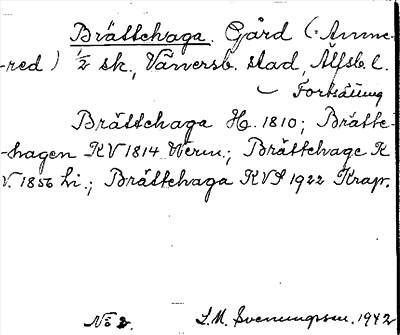 Brättehaga. Gård (: Anne-
-red) ½ sk., Vänersb. stad, Älfsb. l.
Fortsättning
Brättehaga H. 1810; Brätte-
-hagen RV 1814 Werm.; Brättehage K
V. 1856 Li.; Brättehaga KVS 1922 Krap.
No 2. L. M. Svenungsson. 1942